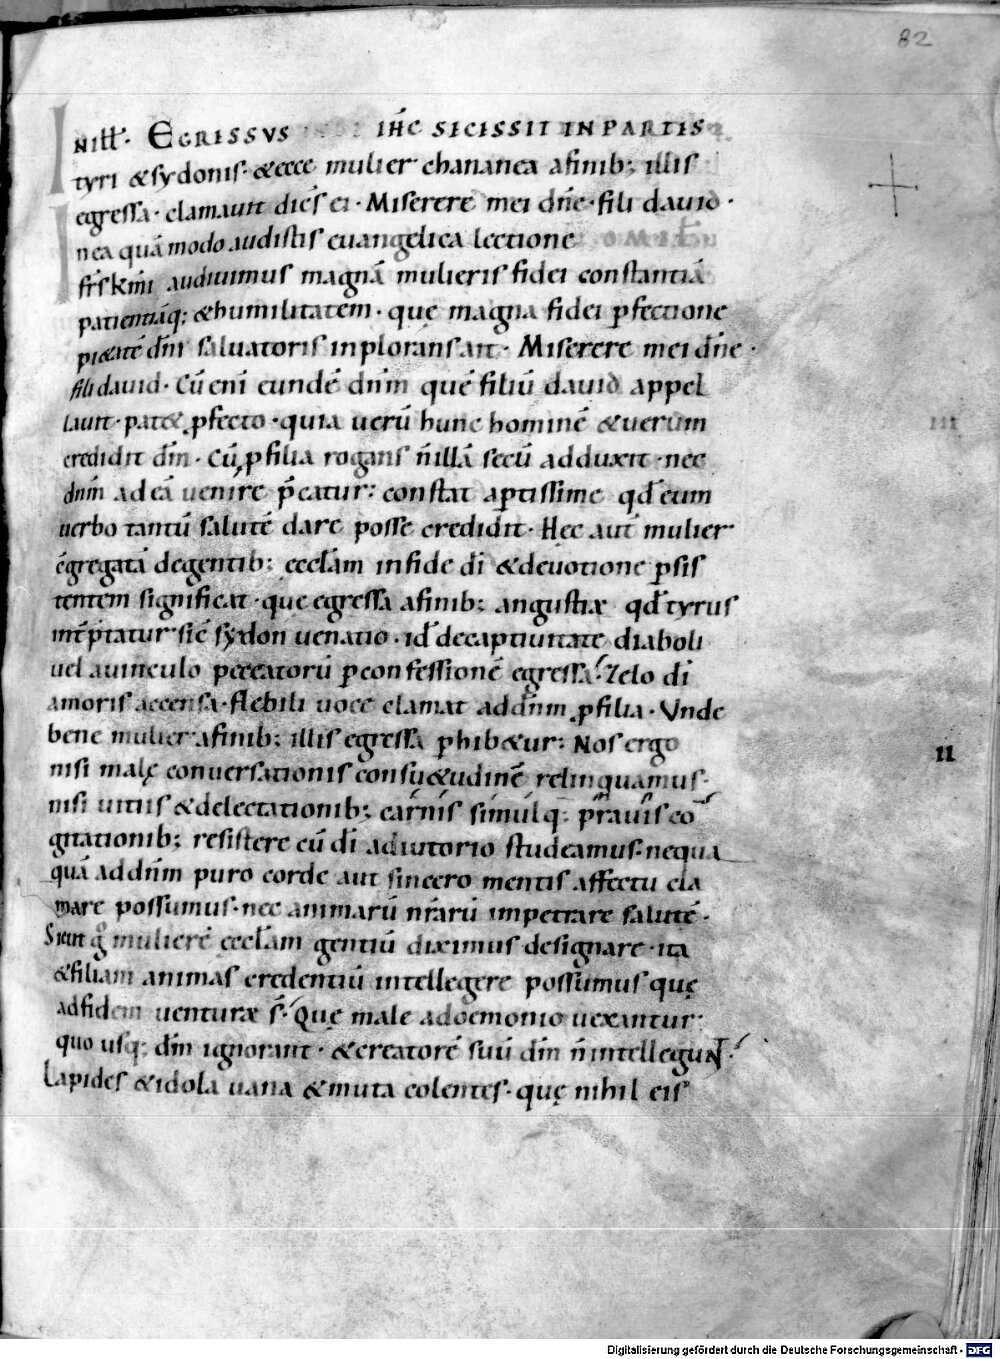 82
IN ILL̅. EGRISSVS IH̅C SICISSIT IN PARTIS
tyri & sydonis. & ecce mulier chananea a finib; illis
egressa. clamauit dicẽs ei. Miserere mei dn̅e. fili dauid.
In ea quã modo audistis euangelica lectione
fr̅s km̅i audiuimus magnã mulieris fidei constantiã
patientiãq; & humilitatem. quę magna fidei ꝑfectione
pi&atẽ dn̅i saluatoris inplorans ait. Miserere mei dn̅e.
fili dauid. Cũ eni̅ eundẽ dn̅m quẽ filiũ dauid appel
lauit. pat& ꝓfecto. quia uerũ hunc hominẽ & uerum
credidit dm̅. Cũ ꝓ filia rogans n̅ illã secũ adduxit. nec
dn̅m ad eã uenire p̅catur: constat aptissime qd̅ eum
uerbo tantũ salutẽ dare posse credidit. Hęc aut̅ mulier
c̅gregatã de gentib; ęccl̅am in fide di̅ & deuotione ꝑsis
tentem significat. que egressa a finib; angustiæ qd̅ tyrus
int̅p̅tatur sic̅ sydon uenatio. id̅ de captiuitate diaboli
uel a uinculo peccatorũ ꝑ confessionẽ egressa. Zelo di̅
amoris accensa. flebili uoce clamat ad dn̅m ꝓ filia. Vnde
bene mulier a finib; illis egressa ꝑhib&ur: Nos ergo
nisi malę conuersationis consu&udinẽ relinquamus.
nisi uitiis & delectationib; carnis simulq; prauis co
gitationib; resistere cũ di̅ adiutorio studeamus. nequa
quã ad dn̅m puro corde aut sincero mentis affectu cla
mare possumus. nec animarũ nr̅arũ impetrare salutẽ.
Sicut g̊ mulierẽ ęccl̅am gentiũ diximus designare. ita
& filiam animas credentiũ intellegere possumus quę
ad fidem uenturæ s̅. Quę male a doemonio uexantur:
quo usq; dm̅ ignorant. & creatorẽ suũ dm̅ n̅ intellegunt.
Lapides & idola uana & muta colentes. quę nihil eis
II
Digitalisierung gefördert durch die Deutsche Forschungsgemeinschaft - DFG